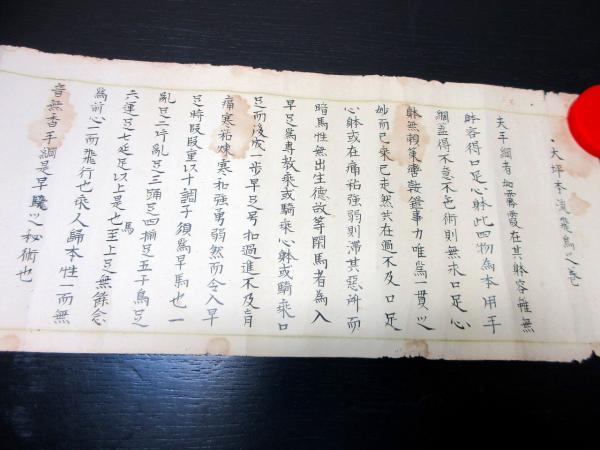 大坪本流飛馬之巻
夫手綱者如雲霞在其躰容雖無
躰容得口足心躰此四物為本用手
綱盖得不意不色術則無米口足心
躰無頼策轡鞍鐙事力唯為一貫之
妙而已乗已走然共在過不及口足
心躰或在痛祐強弱則滞其惡所而
暗馬性無出生德故等閑馬者為入
早足為專教乗或騎乗心躰或騎乗口
足而後成一歩早足号和過進不及肯
痛寒祐煉寒和強勇弱然而令入早
足時段段重以十調子須為早馬也一
乱足二坪乱足三頭足四捕足五千鳥足
六運足七延足以上是也至上足無餘念
馬
為前心一而飛行也乗人歸本性一而無
音無香手綱是早驥之秘術也